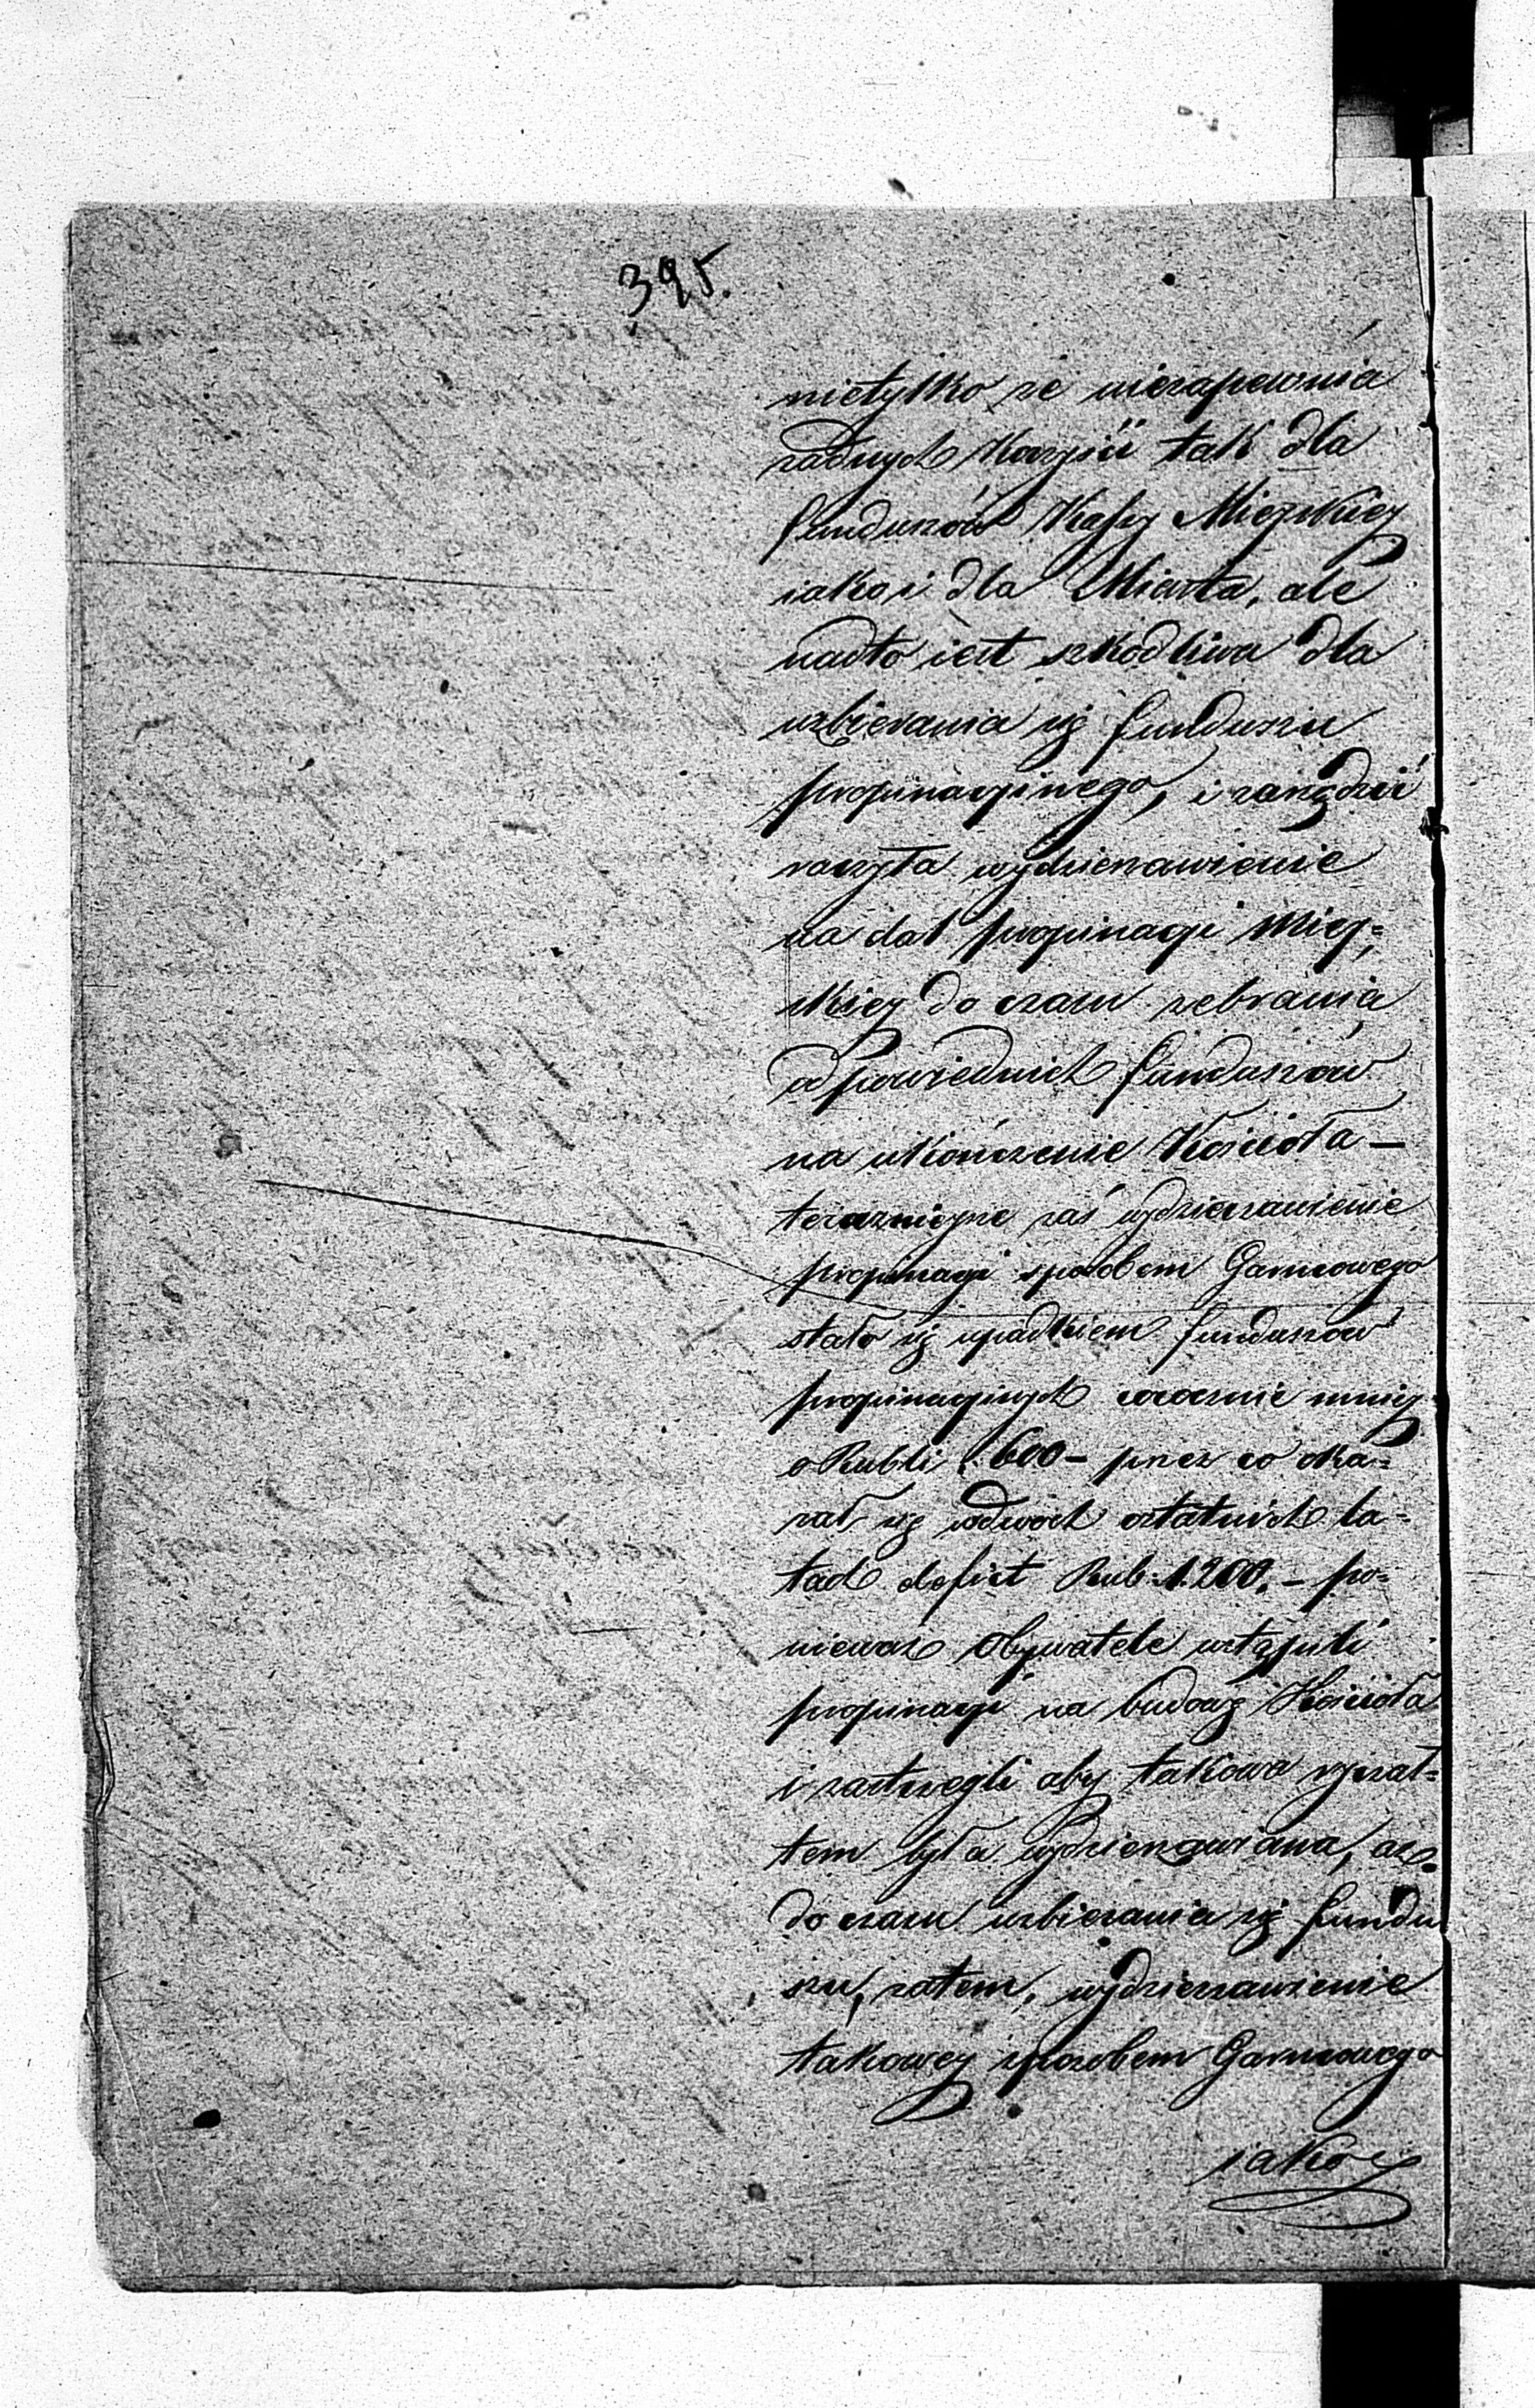 395.
nietylko że niezapewnia
żadnych Korzyści tak dla
funduszów Kassy Mieyskiey
iako i dla Miasta, ale
nadto iest szkodliwa dla
uzbierania się funduszu
propinacyinego, i zarządzić
raczyła wydzierzawienie
na dal propinacyi Miey=
skiey do czasu zebrania
odpowiednich funduszów
na ukończenie Kościoła —
terazniejsze zaś wydzierzawienie
propinacyi sposobem Garncowego
stało się upadkiem funduszów
propinacyinych corocznie mniey
o Rubli s. 600 – przez co oka=
zał się wdwóch ostatnich la=
tach deficit Rub: s. 1200. – po=
nieważ Obywatele ustąpili
propinacyi na budowę Kościoła
i zastrzegli aby takowa ryczał=
tem była wydzierzawiana, aż
do czasu uzbierania się fundu
szu, zatem, wydzierzawienie
takowey sposobem Garncowego
iako